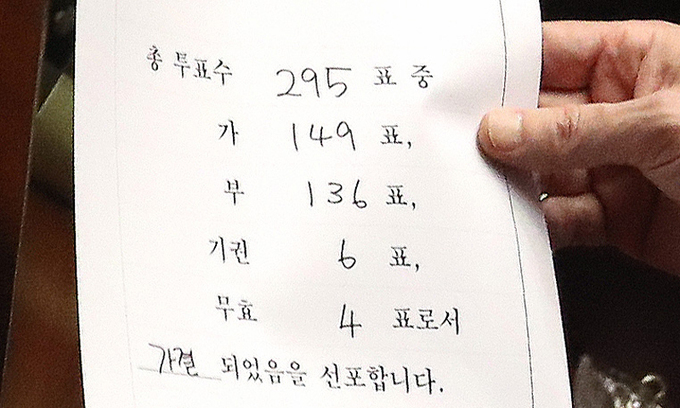 총 투표수 295 표 중
가 149 표,
부 136 표,
기권 6 표,
무효 4 표로서
가결 되었음을 선포합니다.